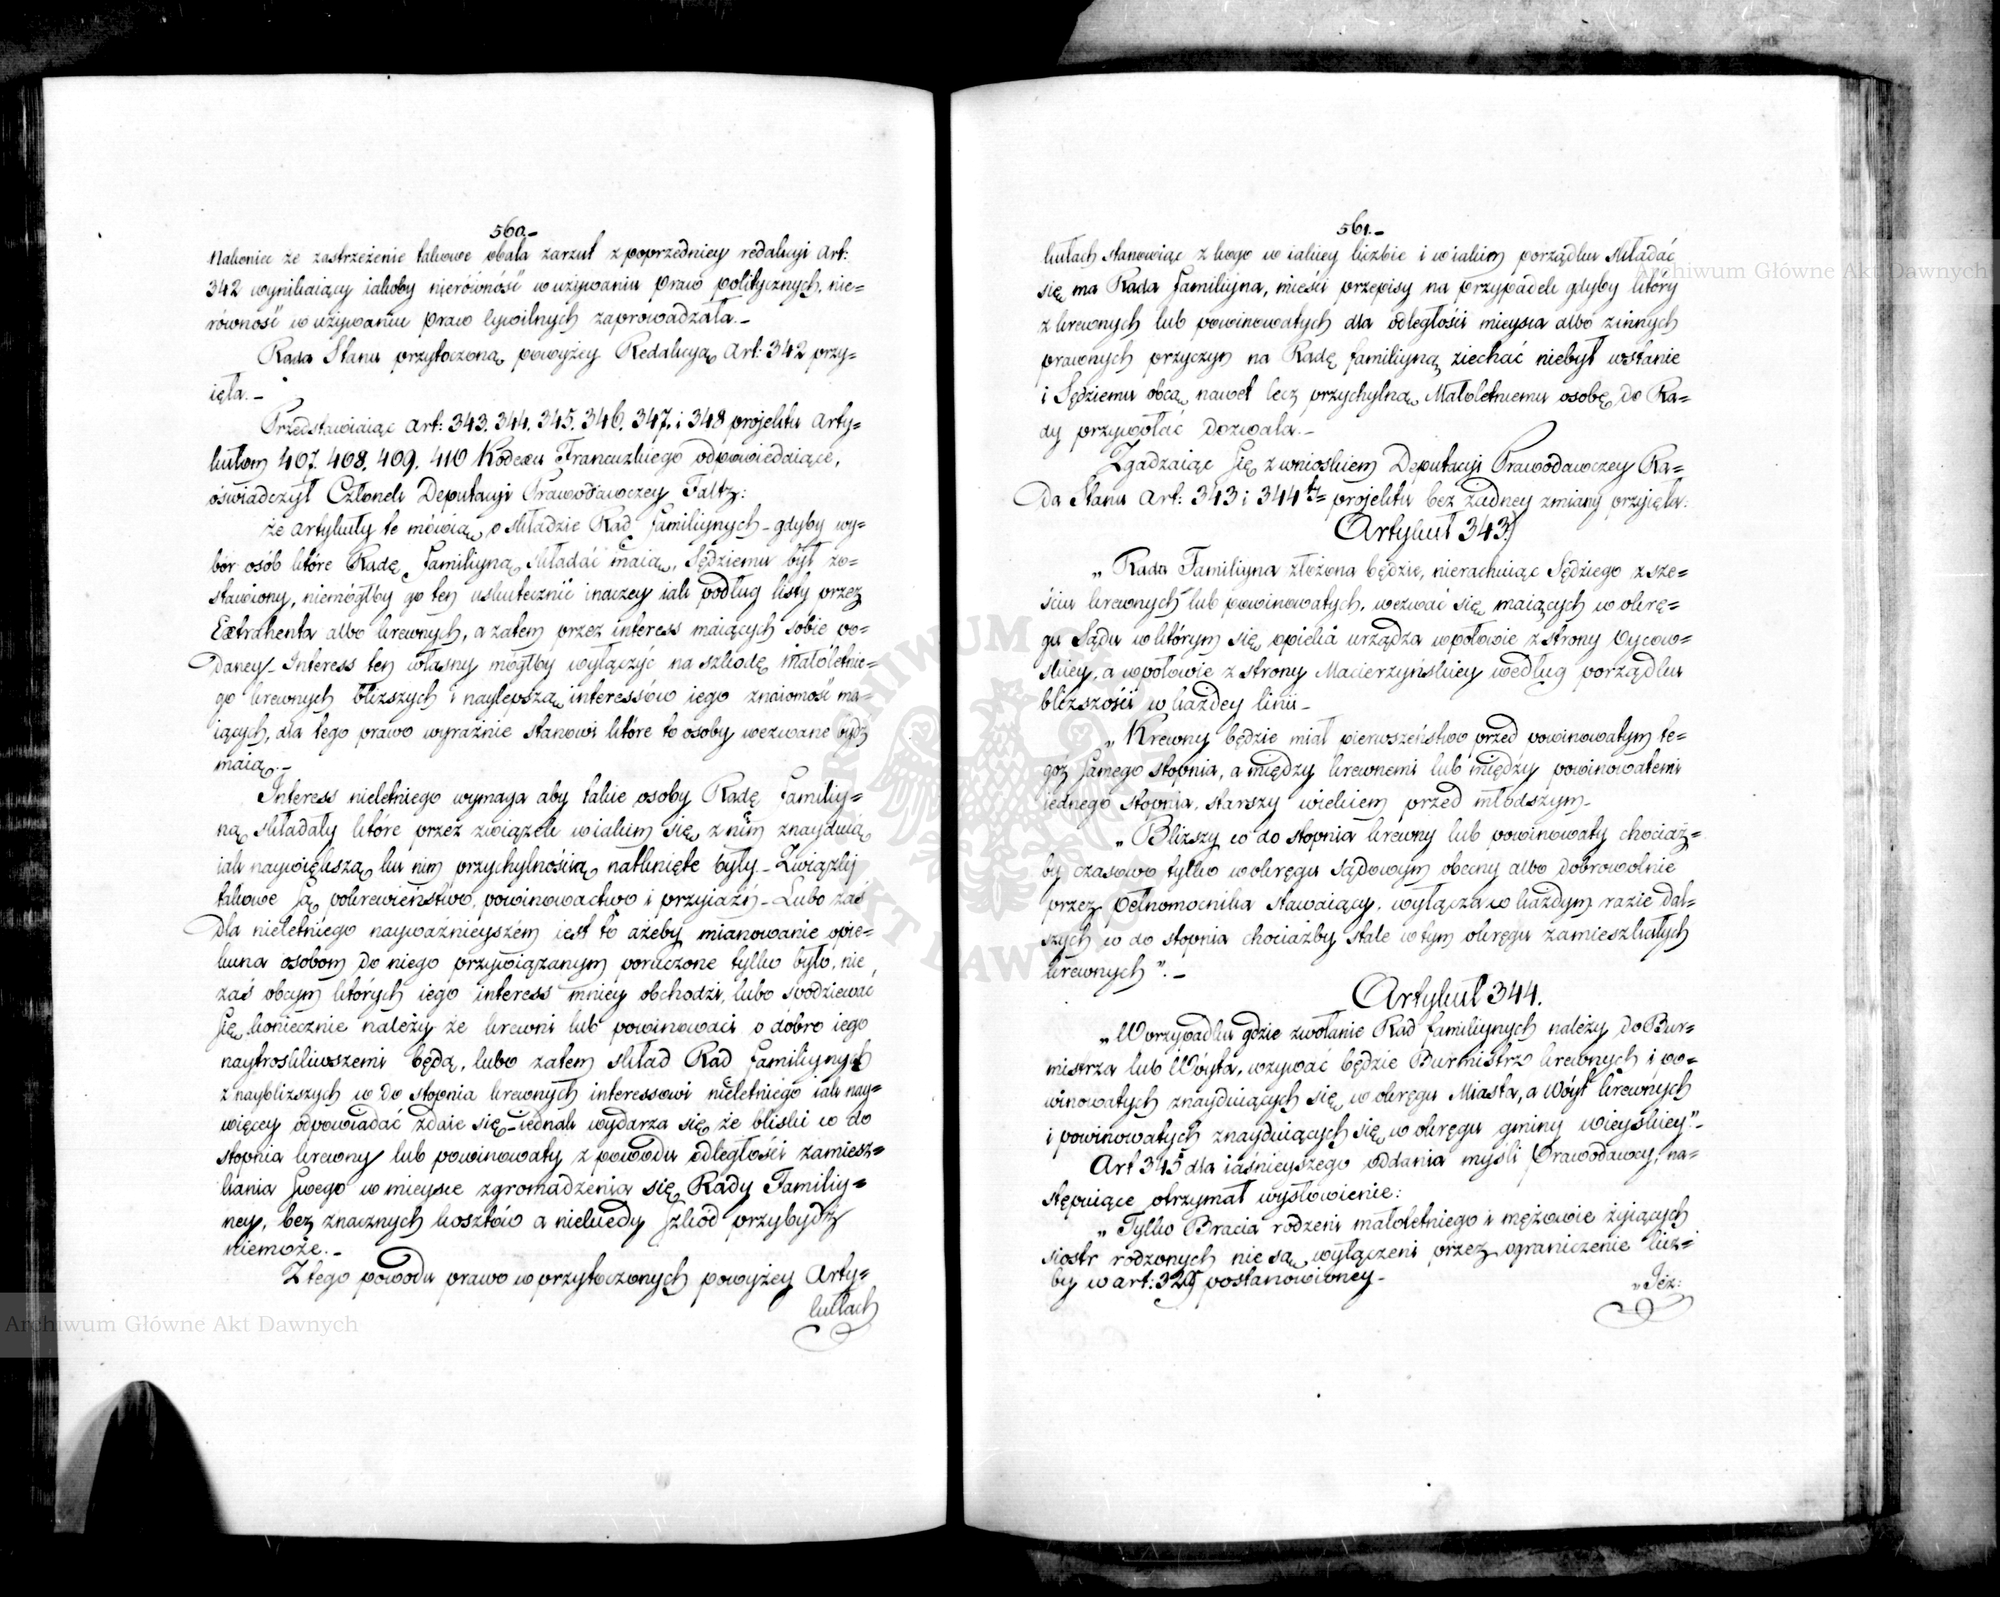 560.
Nakoniec że zastrzeżenie takowe obala zarzut z poprzedniey redakcyi Art:
342 wynikaiący iakoby nierówność w używaniu praw politycznych, nie=
równość w używaniu praw cywilnych zaprowadzała._
Rada Stanu przytoczoną powyżey Redakcyą Art: 342 przy=
ięła._
Przedstawiaiąc Art: 343. 344. 345. 346. 347. i 348 projektu Arty=
kułom 407. 408. 409. 410 Kodexu Francuzkiego odpowiedaiące,
oświadczył Członek Deputacyi Prawodawczey Faltz:
że artykuły te mówią o składzie Rad familiynych _ gdyby wy=
bór osób które Radę Familiyną składać maią, Sędziemu był zo=
stawiony, niemógłby go ten uskutecznić inaczey iak podług listy przez
Extrahenta albo krewnych, a zatem przez interess maiących sobie po=
daney _ Interess ten własny mógłby wyłączyć na szkodę małoletnie=
go krewnych bliższych i naylepszą interessów iego znaiomość ma=
iących, dla tego prawo wyraźnie stanowi które to osoby wezwane bydź
maią._
Interess nieletniego wymaga aby takie osoby Radę Familiy=
ną składały które przez związek w iakim się z nim znayduią
iak naywiększą ku nim przychylnością natknięte były _ Związki
takowe są pokrewieństwo, powinowactwo i przyiaźń _ Lubo zaś
dla nieletniego nayważnieyszém iest to ażeby mianowanie opie=
kuna osobom do niego przywiązanym poruczone tylko było, nie
zaś obcym których iego interess mniey obchodzi, lubo spodziewać
się koniecznie należy że krewni lub powinowaci o dobro iego
naytroskliwszemi będą, lubo zatem skład Rad familiynych
z naybliższych co do stopnia krewnych interessowi nieletniego iak nay=
więcey odpowiadać zdaie się _ iednak wydarza się że bliski co do
stopnia krewny lub powinowaty z powodu odległości zamiesz=
kania swego w mieysce zgromadzenia się Rady Familiy=
ney, bez znacznych kosztów a niekiedy szkód przybydź
niemoże._
Z tego powodu prawo w przytoczonych powyżey Arty=
kułach
561.
kułach stanowiąc z kogo w iakiey liczbie i w iakim porządku składać
się ma Rada familiyna, mieści przepisy na przypadek gdyby który
z krewnych lub powinowatych dla odległości mieysca albo z innych
prawnych przyczyn na Radę familiyną ziechać niebył wstanie
i Sędziemu obcą nawet lecz przychylną Małoletniemu osobę do Ra=
dy przywołać dozwala._
Zgadzaiąc się z wnioskiem Deputacyi Prawodawczey Ra=
da Stanu Art: 343 i 344ty projektu bez żadney zmiany przyięła:
Artykuł 343.
„Rada Familiyna złożona będzie, nierachuiąc Sędziego z sze=
ściu krewnych lub powinowatych, wezwać się maiących w okrę=
gu Sądu w którym się opieka urządza w połowie z strony Oycow=
skiey, a w połowie z strony Macierzyńskiey według porządku
bliższości w każdey linii _
„Krewny będzie miał pierwszeństwo przed powinowatym te=
goż samego stopnia, a między krewnemi lub między powinowatemi
iednego stopnia, starszy wiekiem przed młodszym _
„Bliższy co do stopnia krewny lub powinowaty chociaż=
by czasowo tylko w okręgu sądowym obecny albo dobrowolnie
przez Pełnomocnika stawaiący, wyłącza w każdym razie dal=
szych co do stopnia chociażby stale w tym okręgu zamieszkałych
krewnych”._
Artykuł 344.
„W przypadku gdzie zwołanie Rad familiynych należy do Bur=
mistrza lub Wóyta, wzywać będzie Burmistrz krewnych i po=
winowatych znayduiących się w okręgu Miasta, a Wóyt krewnych
i powinowatych znayduiących się w okręgu gminy wieyskiey.”_
Art 345 dla iaśnieyszego oddania myśli Prawodawcy, na=
stępuiące otrzymał wysłowienie:
„Tylko Bracia rodzeni małoletniego i mężowie żyiących
siostr rodzonych nie są wyłączeni przez ograniczenie licz=
by w art: postanowioney _
„Jeż:
Archiwum Główne Akt Dawnych
Archiwum Główne Akt Dawnych
ARCHIWUM AKT DAWNYCH